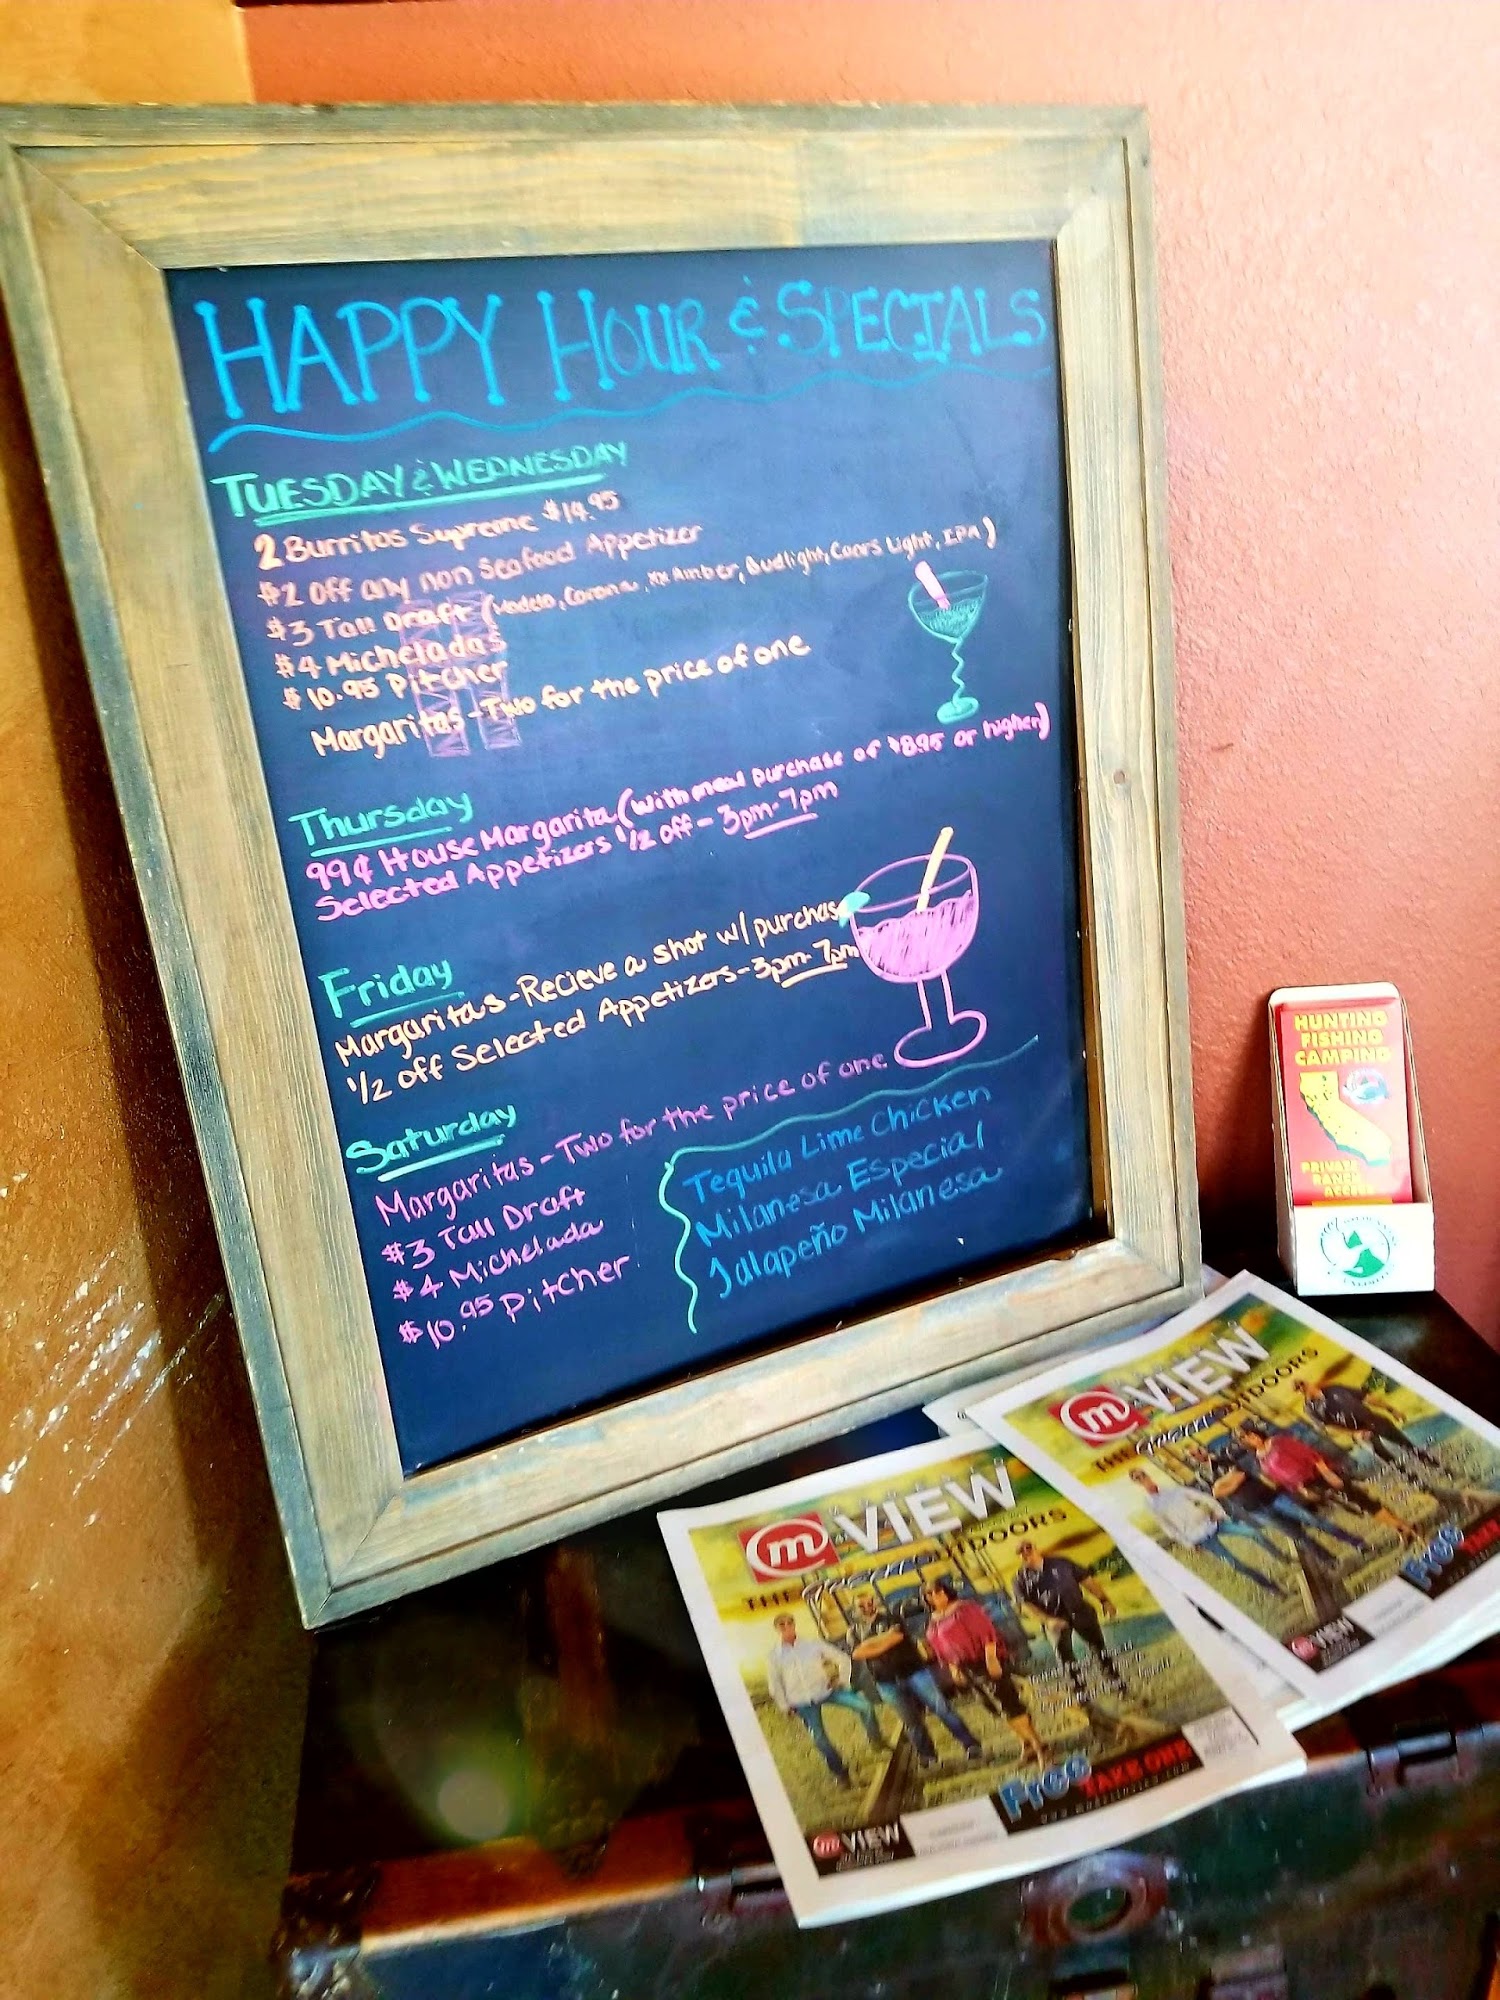 HAPPY HOUR & SPECIALS
TUESDAY & WEDNESDAY
2 Burritos Supreme $14.95
$2 off any non Seafood Appetizer
$3 Tall Draft (Modelo, Corona, XX Amber, Budlight, Coors Light, IPA)
$4 Micheladas
$10.95 Pitcher
Margaritas - Two for the price of one
Thursday
99¢ House Margarita (with meal purchase of $8.95 or higher)
Selected Appetizers 1/2 off - 3pm-7pm
Friday
Margaritas - Recieve a shot w/ purchase
1/2 off Selected Appetizers - 3pm-7pm
Saturday
Margaritas - Two for the price of one
$3 Tall Draft
$4 Michelada
$10.95 Pitcher
Tequila Lime Chicken
Milanesa Especial
Jalapeño Milanesa
HUNTING
FISHING
CAMPING
PRIVATE
RANCH
ACCESS
m VIEW
THE Great OUTDOORS
Free TAKE ONE
m VIEW
m VIEW
THE Great OUTDOORS
Free TAKE
m VIEW